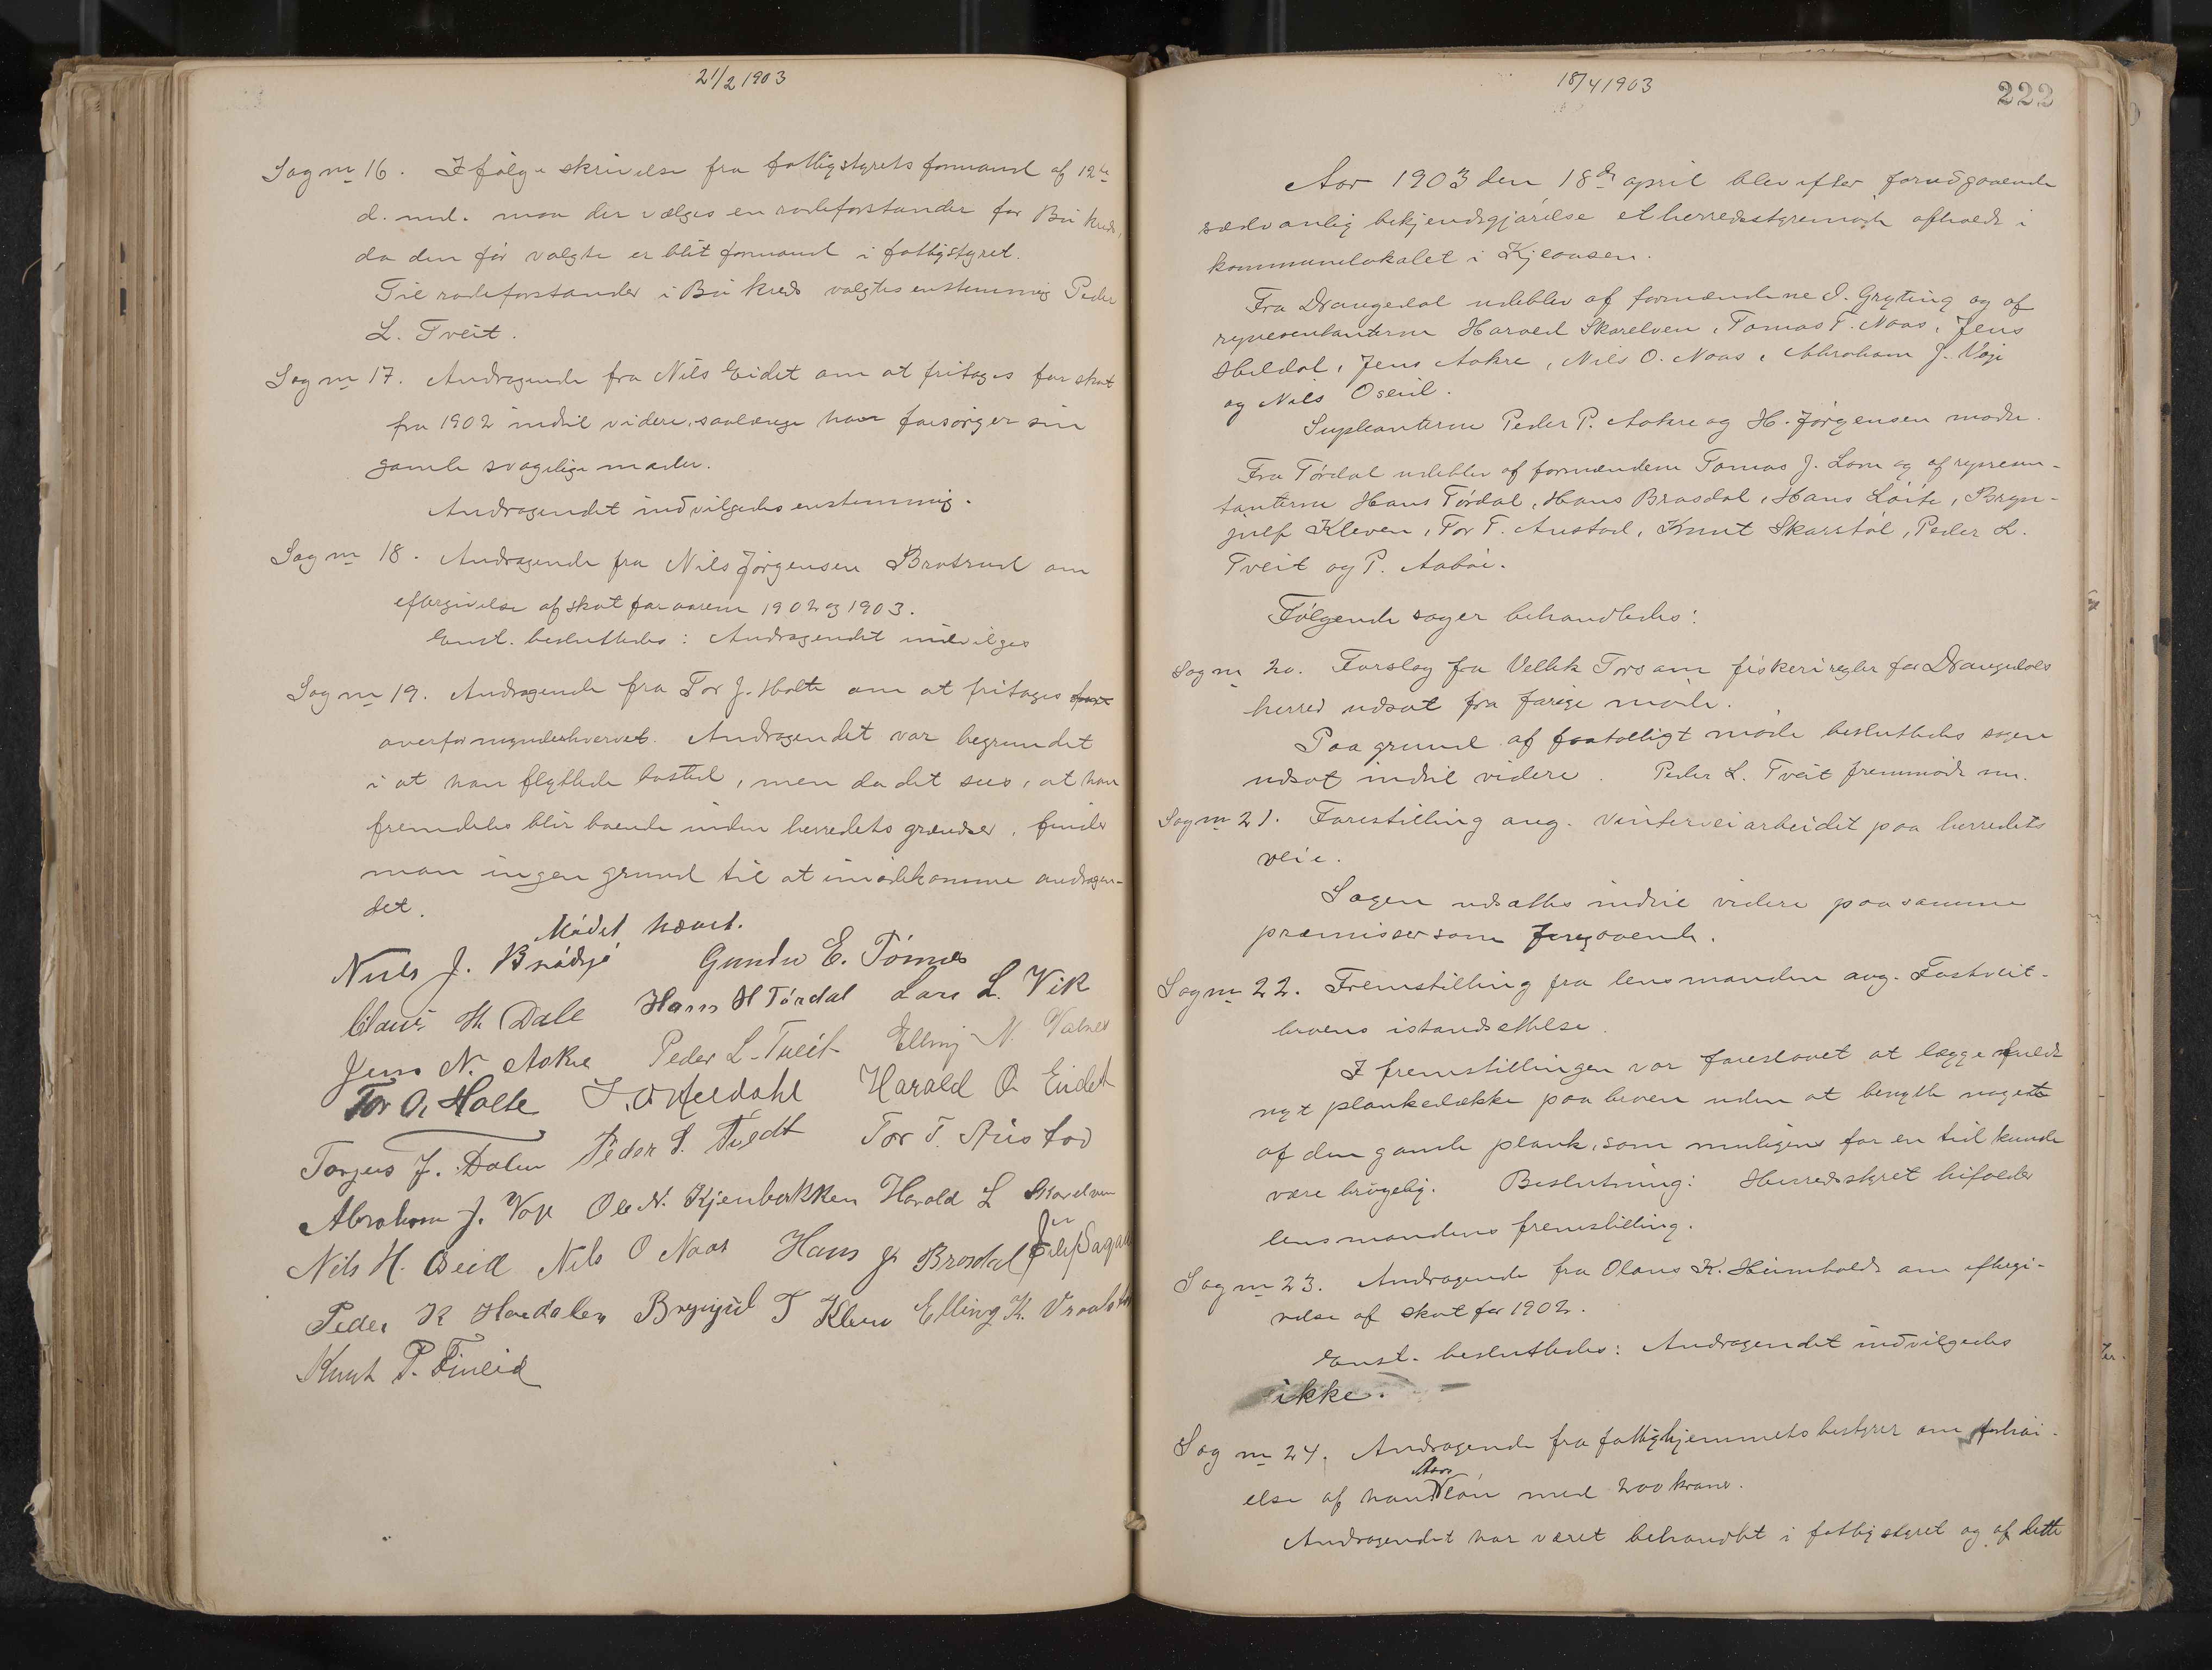 21/2 1903
Sag nr 16. Ifølge skrivelse fra fattigstyrets formand af 12te
d. md. maa der vælges en rodeforstander for Bø kreds,
da den før valgte er blit formand i fattigstyret.
Til rodeforstander i Bø kreds valgtes enstemmig Peder
L. Tveit.
Sag nr 17. Andragende fra Nils Eidet om at fritages for skat
fra 1902 indtil videre, saalænge han forsørger sin
gamle svagelige moder.
Andragendet indvilgedes enstemmig.
Sag nr 18. Andragende fra Nils Jørgensen Brotrud om
eftergivelse af skat for aarene 1902 og 1903.
Enst. besluttedes: Andragendet indvilges
Sag nr 19. Andragende fra Tor J. Holte om at fritages for
overformynderhvervet. Andragendet var begrundet
i at han flyttede bosted, men da det sees, at han
fremdeles blir boende inden herredets grændser, finder
man ingen grund til at imødekomme andragen-
det.
Mødet hævet.
Nils J. Brødsjø Gunder E. Tørnes
Claus H. Dale Hans H Tørdal Lars L. Vik
Jens N. Aakre Peder L. Tveit Elling N.
Tor O. Holte J. O. Heldahl Harald O. Eidet
Torjus J. Dalen Peder S. Tvedt Tor T. Austad
Abraham J. Voje Ole N. Kjenbekken Harald L Skarelven
Nils H. Oseid Nils O Naas Hans Brosdal
Peder K Hoedalen Bryngul T Kleve Elling K.
Knut P. Tineid
18/4 1903
222
Aar 1903 den 18de april blev efter forudgaaende
sædvanlig bekjendtgjørelse et herredsstyremøde afholdt i
kommunelokalet i Kjeaasen.
Fra Drangedal udeblev af formændene O. Gryting og af
repræsentanterne Harald Skarelven, Tomas T. Naas, Jens
Heldal, Jens Aakre, Nils O. Naas, Abraham J. Voje
og Nils Oseid.
Supleanterne Peder P. Aakre og H. Jørgensen mødte.
Fra Tørdal udeblev af formændene Tomas J. Lom og af repræsen-
tanterne Hans Tørdal, Hans Brosdal, Hans Løite, Bryn-
julf Kleven, Tor T. Austad, Knut Skarstøl, Peder L.
Tveit og P. Aabøe.
Følgende sager behandledes:
Sag nr 20. Forslag fra Vellek Tors om fiskeriregler for Drangedals
herred udsat fra forrige møde.
Paa grund af faatalligt møde besluttedes sagen
udsat indtil videre. Peder L. Tveit fremmødte nu.
Sag nr 21. Forestilling ang. vinterveiarbeidet paa herredets
veie.
Sagen udsættes indtil videre paa samme
præmisser som foregaaende.
Sag nr 22. Fremstilling fra lensmanden ang. Tostveit-
broens istandsættelse.
I fremstillingen var foreslaaet at lægge fuldt
nyt plankedække paa broen uden at benytte noget
af den gamle plank, som muligens for en tid kunde
være brugelig. Beslutning: Herredsstyret bifalder
lensmandens fremstilling.
Sag nr 23. Andragende fra Olaus K. Heimholdt om eftergi-
velse af skat for 1902.
Enst. besluttedes: Andragendet indvilgedes
ikke.
Sag nr 24. Andragende fra fattighjemmets bestyrer om forhøi-
else af hans Aarsløn med 200 kroner.
Andragendet har været behandlet i fattigstyret og af dette